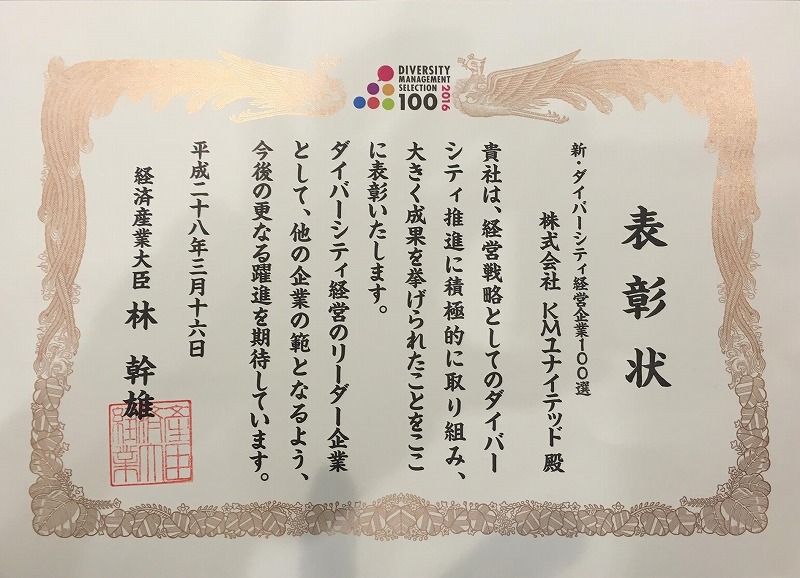 DIVERSITY
MANAGEMENT
SELECTION
100
2016
表彰状
新・ダイバーシティ経営企業100選
株式会社 KMユナイテッド 殿
貴社は、経営戦略としてのダイバー
シティ推進に積極的に取り組み、
大きく成果を挙げられたことをここ
に表彰いたします。
ダイバーシティ経営のリーダー企業
として、他の企業の範となるよう、
今後の更なる躍進を期待しています。
平成二十八年三月十六日
経済産業大臣 林 幹雄